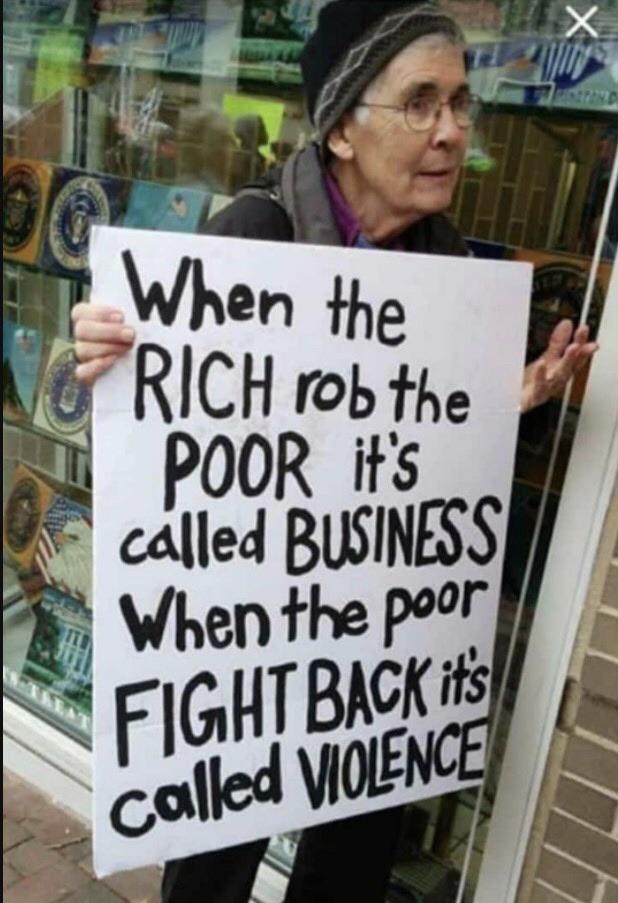 When the
RICH rob the
POOR it's
called BUSINESS
When the poor
FIGHT BACK it's
called VIOLENCE